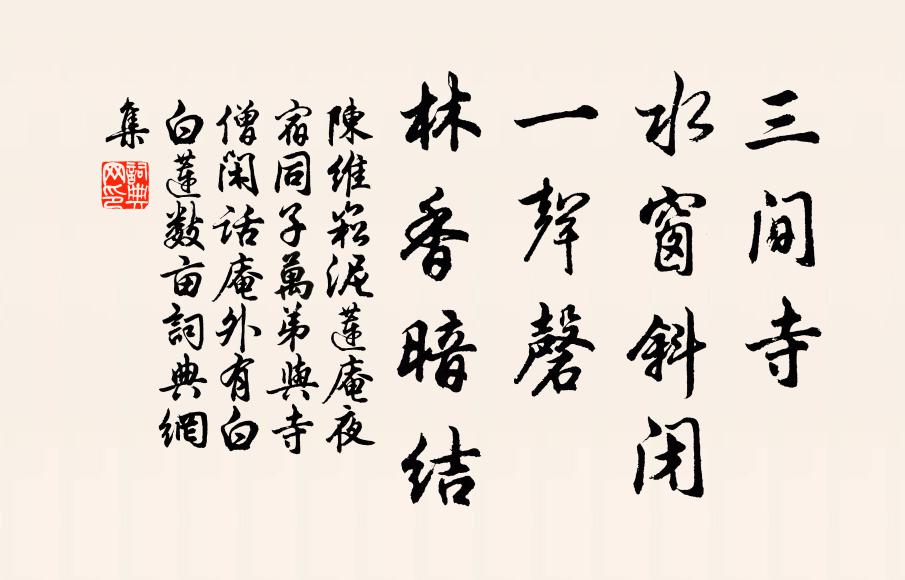 三间寺
水窗斜闭
一聲磬
林香暗结
陳維崧泥蓮庵夜
宿同子萬弟與寺
僧闲话庵外有白
白蓮数亩詞典網
集
詞典
网印